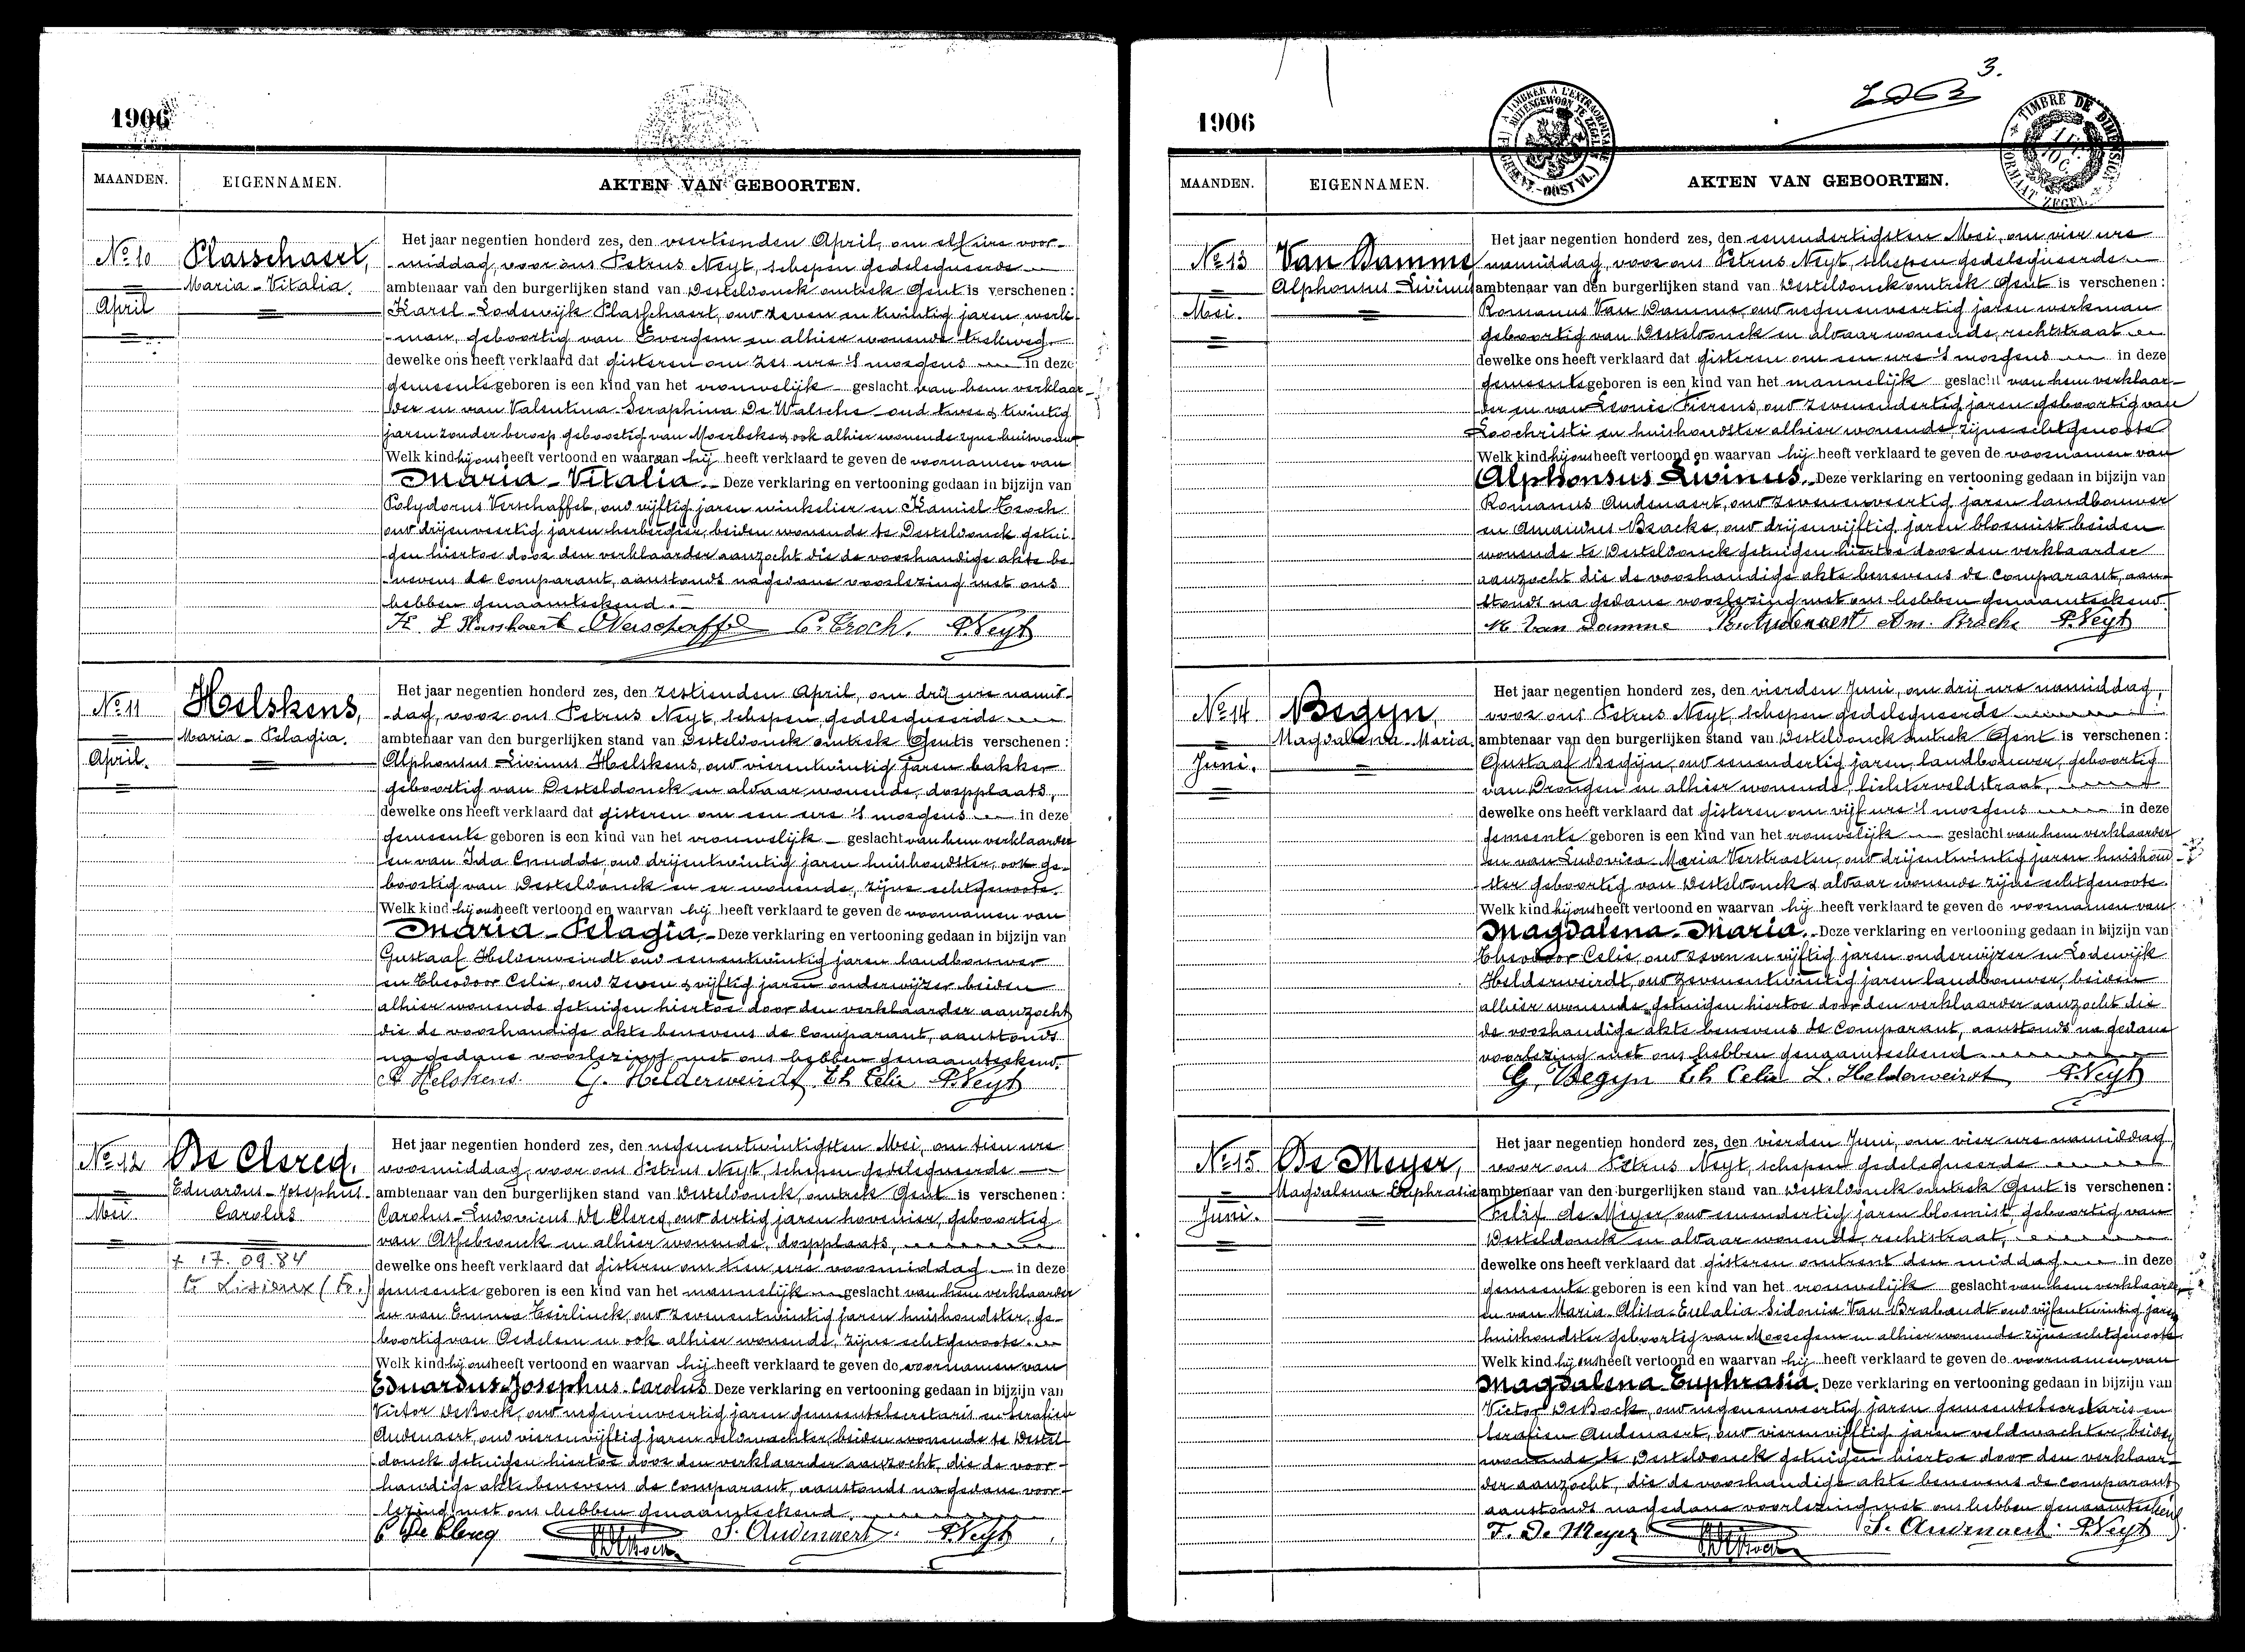 1906
MAANDEN.
EIGENNAMEN.
AKTEN VAN GEBOORTEN.
No 10
April
Plasschaert,
Maria-Vitalia.
Het jaar negentien honderd zes, den veertienden April, om elf ure voor-
-middag, voor ons Petrus Neyt, schepen gedelegueerde
ambtenaar van den burgerlijken stand van Desteldonck omtrek Gent is verschenen:
Karel-Lodewijk Plasschaert, oud zeven en twintig jaren, werk-
-man, geboortig van Evergem en alhier wonende trekweg.
dewelke ons heeft verklaard dat gisteren om zes ure 's morgens in deze
gemeente geboren is een kind van het vrouwelijk geslacht van hem verklaar-
der en van Valentina-Seraphina De Walsche oud twee & twintig
jaren zonder beroep geboortig van Moerbeke & ook alhier wonende zijne huisvrouw
Welk kind hij ons heeft vertoond en waaraan hij heeft verklaard te geven de voornamen van
Maria-Vitalia. Deze verklaring en vertooning gedaan in bijzijn van
Polydorus Verschaffel, oud vijftig jaren winkelier en Kamiel Troch
oud drijenveertig jaren herbergier, beiden wonende te Desteldonck getui-
gen hiertoe door den verklaarder aanzocht die de voorhandige akte be-
-nevens de comparant, aanstonds na gedane voorlezing met ons
hebben genaamteekend.
K L Plasschaert Verschaffel C. Troch. P. Neyt
No 11
April.
Helskens,
Maria-Pelagia.
Het jaar negentien honderd zes, den zestienden April, om drij ure namid-
-dag, voor ons Petrus Neyt, schepen gedelegueerde
ambtenaar van den burgerlijken stand van Desteldonck omtrek Gent is verschenen:
Alphonsus Livinus Helskens, oud vierentwintig jaren bakker
geboortig van Desteldonck en aldaar wonende, dorpplaats,
dewelke ons heeft verklaard dat gisteren om een ure 's morgens in deze
gemeente geboren is een kind van het vrouwelijk geslacht van hem verklaarder
en van Ida Cnudde, oud drijentwintig jaren huishoudster, ook ge-
boortig van Desteldonck en er wonende, zijne echtgenoote.
Welk kind hij ons heeft vertoond en waarvan hij heeft verklaard te geven de voornamen van
Maria-Pelagia. Deze verklaring en vertooning gedaan in bijzijn van
Gustaaf Helderweirdt oud eenentwintig jaren landbouwer
en Theodoor Celie, oud zeven & vijftig jaren onderwijzer beiden
alhier wonende getuigen hiertoe door den verklaarder aanzocht
die de voorhandige akte benevens de comparant, aanstonds
na gedane voorlezing met ons hebben genaamteekend.
A Helskens. G. Helderweirdt Th Celie P. Neyt
No 12
Mei.
De Clercq.
Eduardus-Josephus-
Carolus
+ 17.09.84
te Lisieux (Fr.)
Het jaar negentien honderd zes, den negenentwintigsten Mei, om tien ure
voormiddag, voor ons Petrus Neyt, schepen gedelegueerde
ambtenaar van den burgerlijken stand van Desteldonck, omtrek Gent is verschenen:
Carolus-Ludovicus De Clercq, oud dertig jaren hovenier, geboortig
van Assebrouck en alhier wonende, dorpplaats,
dewelke ons heeft verklaard dat gisteren om tien ure voormiddag in deze
gemeente geboren is een kind van het mannelijk geslacht van hem verklaarder
en van Emma Teirlinck, oud zevenentwintig jaren huishoudster, ge-
boortig van Oedelem en ook alhier wonende, zijne echtgenoote
Welk kind hij ons heeft vertoond en waarvan hij heeft verklaard te geven de voornamen van
Eduardus-Josephus-Carolus Deze verklaring en vertooning gedaan in bijzijn van
Victor DeBock, oud negenenveertig jaren gemeentesecretaris en Serafien
Audenaert, oud vierenvijftig jaren veldwachter, beiden wonende te Destel-
donck getuigen hiertoe door den verklaarder aanzocht, die de voor-
handige akte benevens de comparant, aanstonds na gedane voor-
lezing met ons hebben genaamteekend.
C De Clercq S. Audenaert P. Neyt
3.
1906
MAANDEN.
EIGENNAMEN.
AKTEN VAN GEBOORTEN.
TIMBRE DE DIMENSION
FORMAAT ZEGEL
No 13
Mei.
Van Damme
Alphonsus-Livinus
Het jaar negentien honderd zes, den eenendertigsten Mei, om vier ure
namiddag, voor ons Petrus Neyt, schepen gedelegueerde
ambtenaar van den burgerlijken stand van Desteldonck omtrek Gent is verschenen:
Romanus Van Damme, oud negenenveertig jaren werkman
geboortig van Desteldonck en aldaar wonende, rechtstraat
dewelke ons heeft verklaard dat gisteren om een ure 's morgens in deze
gemeente geboren is een kind van het mannelijk geslacht van hem verklaar-
der en van Leonie Fierens, oud zevenendertig jaren geboortig van
Loochristi en huishoudster alhier wonende, zijne echtgenoote
Welk kind hij ons heeft vertoond en waarvan hij heeft verklaard te geven de voornamen van
Alphonsus Livinus. Deze verklaring en vertooning gedaan in bijzijn van
Romanus Audenaert, oud zevenenveertig jaren landbouwer
en Amandus Bracke, oud drijenvijftig jaren bloemist beiden
wonende te Desteldonck getuigen hiertoe door den verklaarder
aanzocht die de voorhandige akte benevens de comparant, aan-
stonds na gedane voorlezing met ons hebben genaamteekend.
R Van Damme R. Audenaert Am. Bracke P. Neyt
No 14
Juni.
Begyn,
Magdalena-Maria
Het jaar negentien honderd zes, den vierden Juni, om drij ure namiddag,
voor ons Petrus Neyt, schepen gedelegueerde
ambtenaar van den burgerlijken stand van Desteldonck omtrek Gent is verschenen:
Gustaaf Begijn, oud eenendertig jaren, landbouwer, geboortig
van Drongen en alhier wonende, lichterveldstraat,
dewelke ons heeft verklaard dat gisteren om vijf ure 's morgens in deze
gemeente geboren is een kind van het vrouwelijk geslacht van hem verklaarder
en van Ludovica-Maria Verstraeten, oud drijentwintig jaren huishoud-
ster geboortig van Desteldonck & aldaar wonende zijne echtgenoote.
Welk kind hij ons heeft vertoond en waarvan hij heeft verklaard te geven de voornamen van
Magdalena-Maria. Deze verklaring en vertooning gedaan in bijzijn van
Theodoor Celie, oud zeven en vijftig jaren onderwijzer en Lodewijk
Helderweirdt, oud zevenentwintig jaren landbouwer, beiden
alhier wonende getuigen hiertoe door den verklaarder aanzocht die
de voorhandige akte benevens de comparant, aanstonds na gedane
voorlezing met ons hebben genaamteekend
G. Begyn Th Celie L. Helderweirdt P. Neyt
No 15
Juni.
De Meyer,
Magdalena Euphrasia
Het jaar negentien honderd zes, den vierden Juni, om vier ure namiddag,
voor ons Petrus Neyt, schepen gedelegueerde
ambtenaar van den burgerlijken stand van Desteldonck omtrek Gent is verschenen:
Felix de Meyer, oud eenendertig jaren bloemist, geboortig van
Desteldonck en aldaar wonende, rechtstraat,
dewelke ons heeft verklaard dat gisteren omtrent den middag in deze
gemeente geboren is een kind van het vrouwelijk geslacht van hem verklaarder
en van Maria-Alisa-Eulalia-Sidonia Van Brabandt oud vijfentwintig jaren
huishoudster geboortig van Moozegem en alhier wonende zijne echtgenoote
Welk kind hij ons heeft vertoond en waarvan hij heeft verklaard te geven de voornamen van
Magdalena Euphrasia. Deze verklaring en vertooning gedaan in bijzijn van
Victor DeBock, oud negenenveertig jaren gemeentesecretaris en
Serafien Audenaert, oud vierenvijftig jaren veldwachter, beiden
wonende te Desteldonck getuigen hiertoe door den verklaar-
der aanzocht, die de voorhandige akte benevens de comparant
aanstonds na gedane voorlezing met ons hebben genaamteekend.
F. De Meyer S. Audenaert P. Neyt